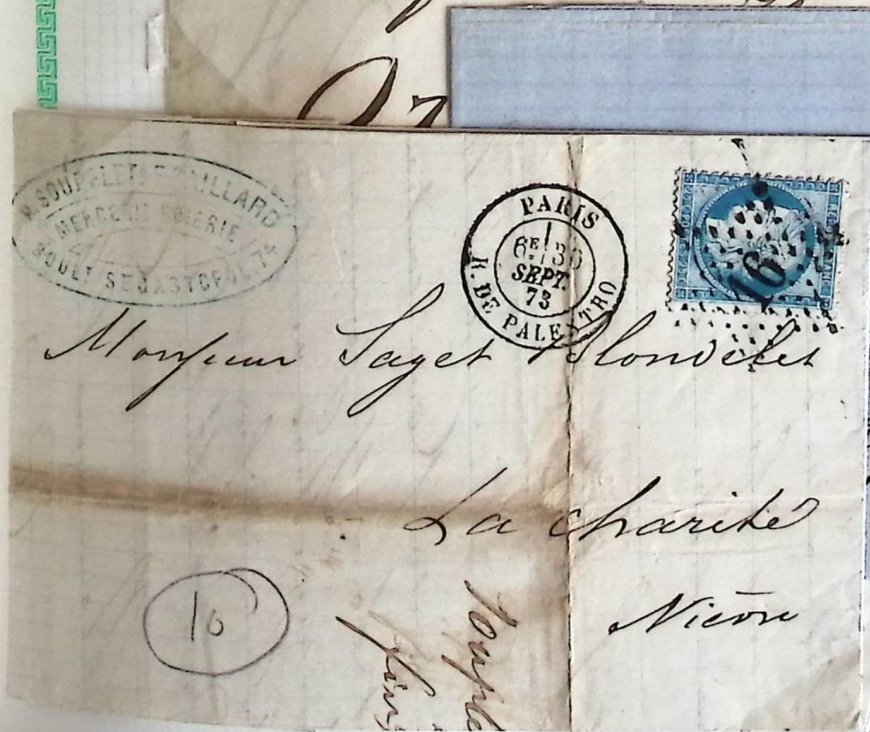 MERCERIE SOIERIE
BOULT SEBASTOPOL. 74
PARIS
6E
SEPT.
73
R. DE PALESTRO
16
Monsieur Saget Blondelet
La charité
Nièvre
10